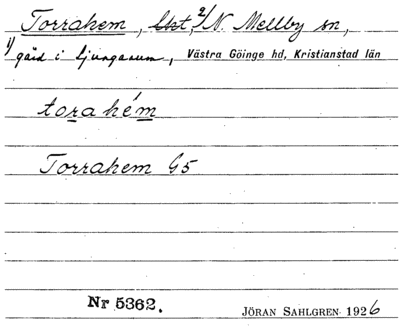 Torrahem, Lht, 2/ N. Mellby sn,
1/ gård i Ljungarum, Västra Göinge hd, Kristianstad län
torahém
Torrahem G5
Nr 5362. JÖRAN SAHLGREN 1926